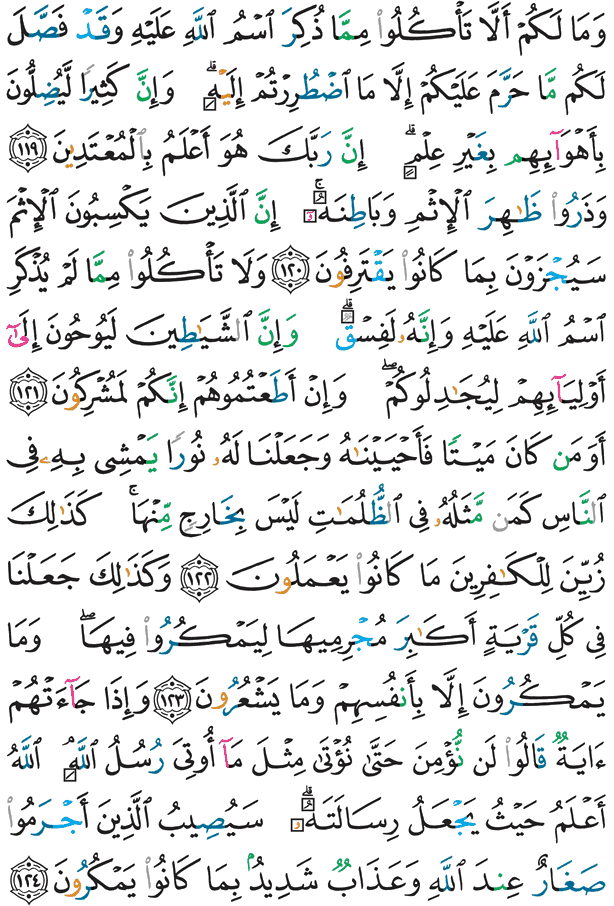 وَمَا لَكُمْ أَلَّا تَأْكُلُوا۟ مِمَّا ذُكِرَ ٱسْمُ ٱللَّهِ عَلَيْهِ وَقَدْ فَصَّلَ
لَكُم مَّا حَرَّمَ عَلَيْكُمْ إِلَّا مَا ٱضْطُرِرْتُمْ إِلَيْهِ ۗ وَإِنَّ كَثِيرًا لَّيُضِلُّونَ
بِأَهْوَآئِهِم بِغَيْرِ عِلْمٍ ۗ إِنَّ رَبَّكَ هُوَ أَعْلَمُ بِٱلْمُعْتَدِينَ ﴿١١٩﴾
وَذَرُوا۟ ظَـٰهِرَ ٱلْإِثْمِ وَبَاطِنَهُۥٓ ۚ إِنَّ ٱلَّذِينَ يَكْسِبُونَ ٱلْإِثْمَ
سَيُجْزَوْنَ بِمَا كَانُوا۟ يَقْتَرِفُونَ ﴿١٢٠﴾ وَلَا تَأْكُلُوا۟ مِمَّا لَمْ يُذْكَرِ
ٱسْمُ ٱللَّهِ عَلَيْهِ وَإِنَّهُۥ لَفِسْقٌ ۗ وَإِنَّ ٱلشَّيَـٰطِينَ لَيُوحُونَ إِلَىٰٓ
أَوْلِيَآئِهِمْ لِيُجَـٰدِلُوكُمْ ۖ وَإِنْ أَطَعْتُمُوهُمْ إِنَّكُمْ لَمُشْرِكُونَ ﴿١٢١﴾
أَوَمَن كَانَ مَيْتًا فَأَحْيَيْنَـٰهُ وَجَعَلْنَا لَهُۥ نُورًا يَمْشِى بِهِۦ فِى
ٱلنَّاسِ كَمَن مَّثَلُهُۥ فِى ٱلظُّلُمَـٰتِ لَيْسَ بِخَارِجٍ مِّنْهَا ۚ كَذَٰلِكَ
زُيِّنَ لِلْكَـٰفِرِينَ مَا كَانُوا۟ يَعْمَلُونَ ﴿١٢٢﴾ وَكَذَٰلِكَ جَعَلْنَا
فِى كُلِّ قَرْيَةٍ أَكَـٰبِرَ مُجْرِمِيهَا لِيَمْكُرُوا۟ فِيهَا ۖ وَمَا
يَمْكُرُونَ إِلَّا بِأَنفُسِهِمْ وَمَا يَشْعُرُونَ ﴿١٢٣﴾ وَإِذَا جَآءَتْهُمْ
ءَايَةٌ قَالُوا۟ لَن نُّؤْمِنَ حَتَّىٰ نُؤْتَىٰ مِثْلَ مَآ أُوتِىَ رُسُلُ ٱللَّهِ ۘ ٱللَّهُ
أَعْلَمُ حَيْثُ يَجْعَلُ رِسَالَتَهُۥ ۗ سَيُصِيبُ ٱلَّذِينَ أَجْرَمُوا۟
صَغَارٌ عِندَ ٱللَّهِ وَعَذَابٌ شَدِيدٌۢ بِمَا كَانُوا۟ يَمْكُرُونَ ﴿١٢٤﴾